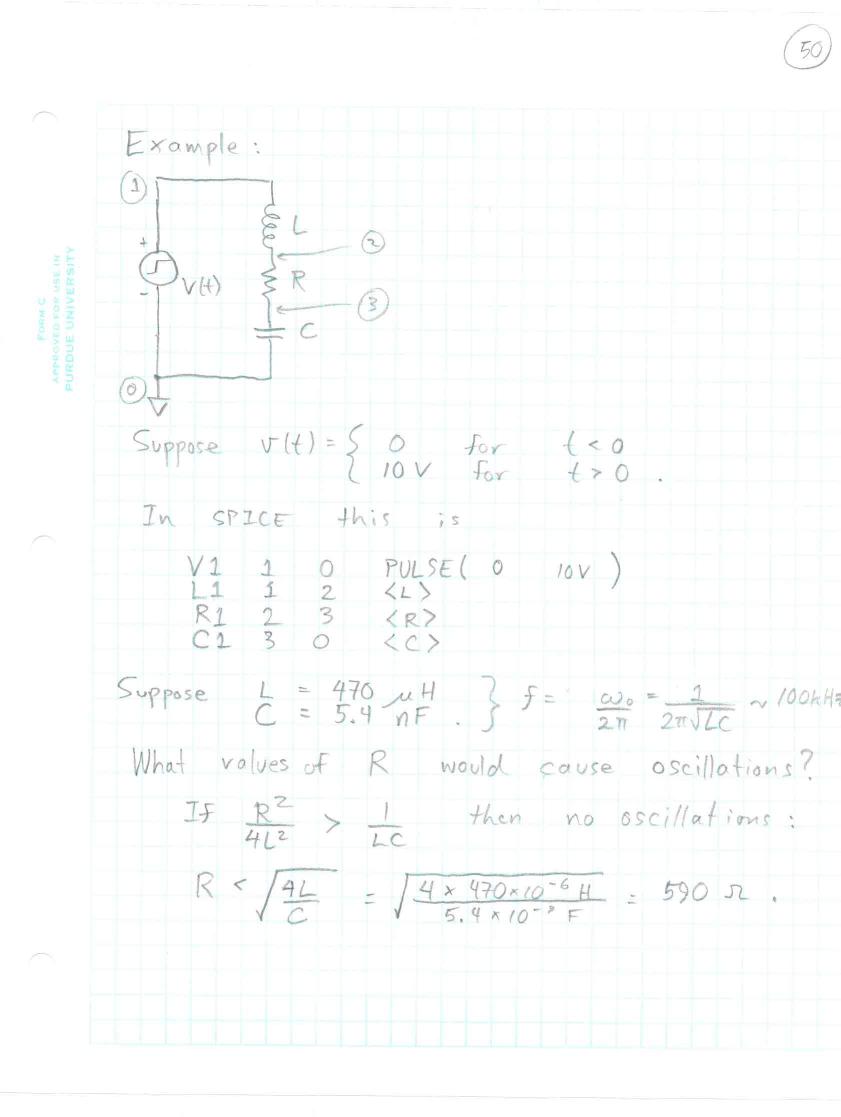 50
Example :
1
L
2
+
V(t)
R
-
3
C
0
FORM C
APPROVED FOR USE IN
PURDUE UNIVERSITY
Suppose v(t) = { 0 for t < 0
10 V for t > 0 .
In SPICE this is
V1 1 0 PULSE( 0 10V )
L1 1 2 <L>
R1 2 3 <R>
C1 3 0 <C>
Suppose L = 470 μH } f = ω₀/2π = 1/2π√LC ~ 100kHz
C = 5.4 nF .
What values of R would cause oscillations?
If R²/4L² > 1/LC then no oscillations :
R < √(4L/C) = √(4 × 470×10⁻⁶ H / 5.4 × 10⁻⁹ F) = 590 Ω .